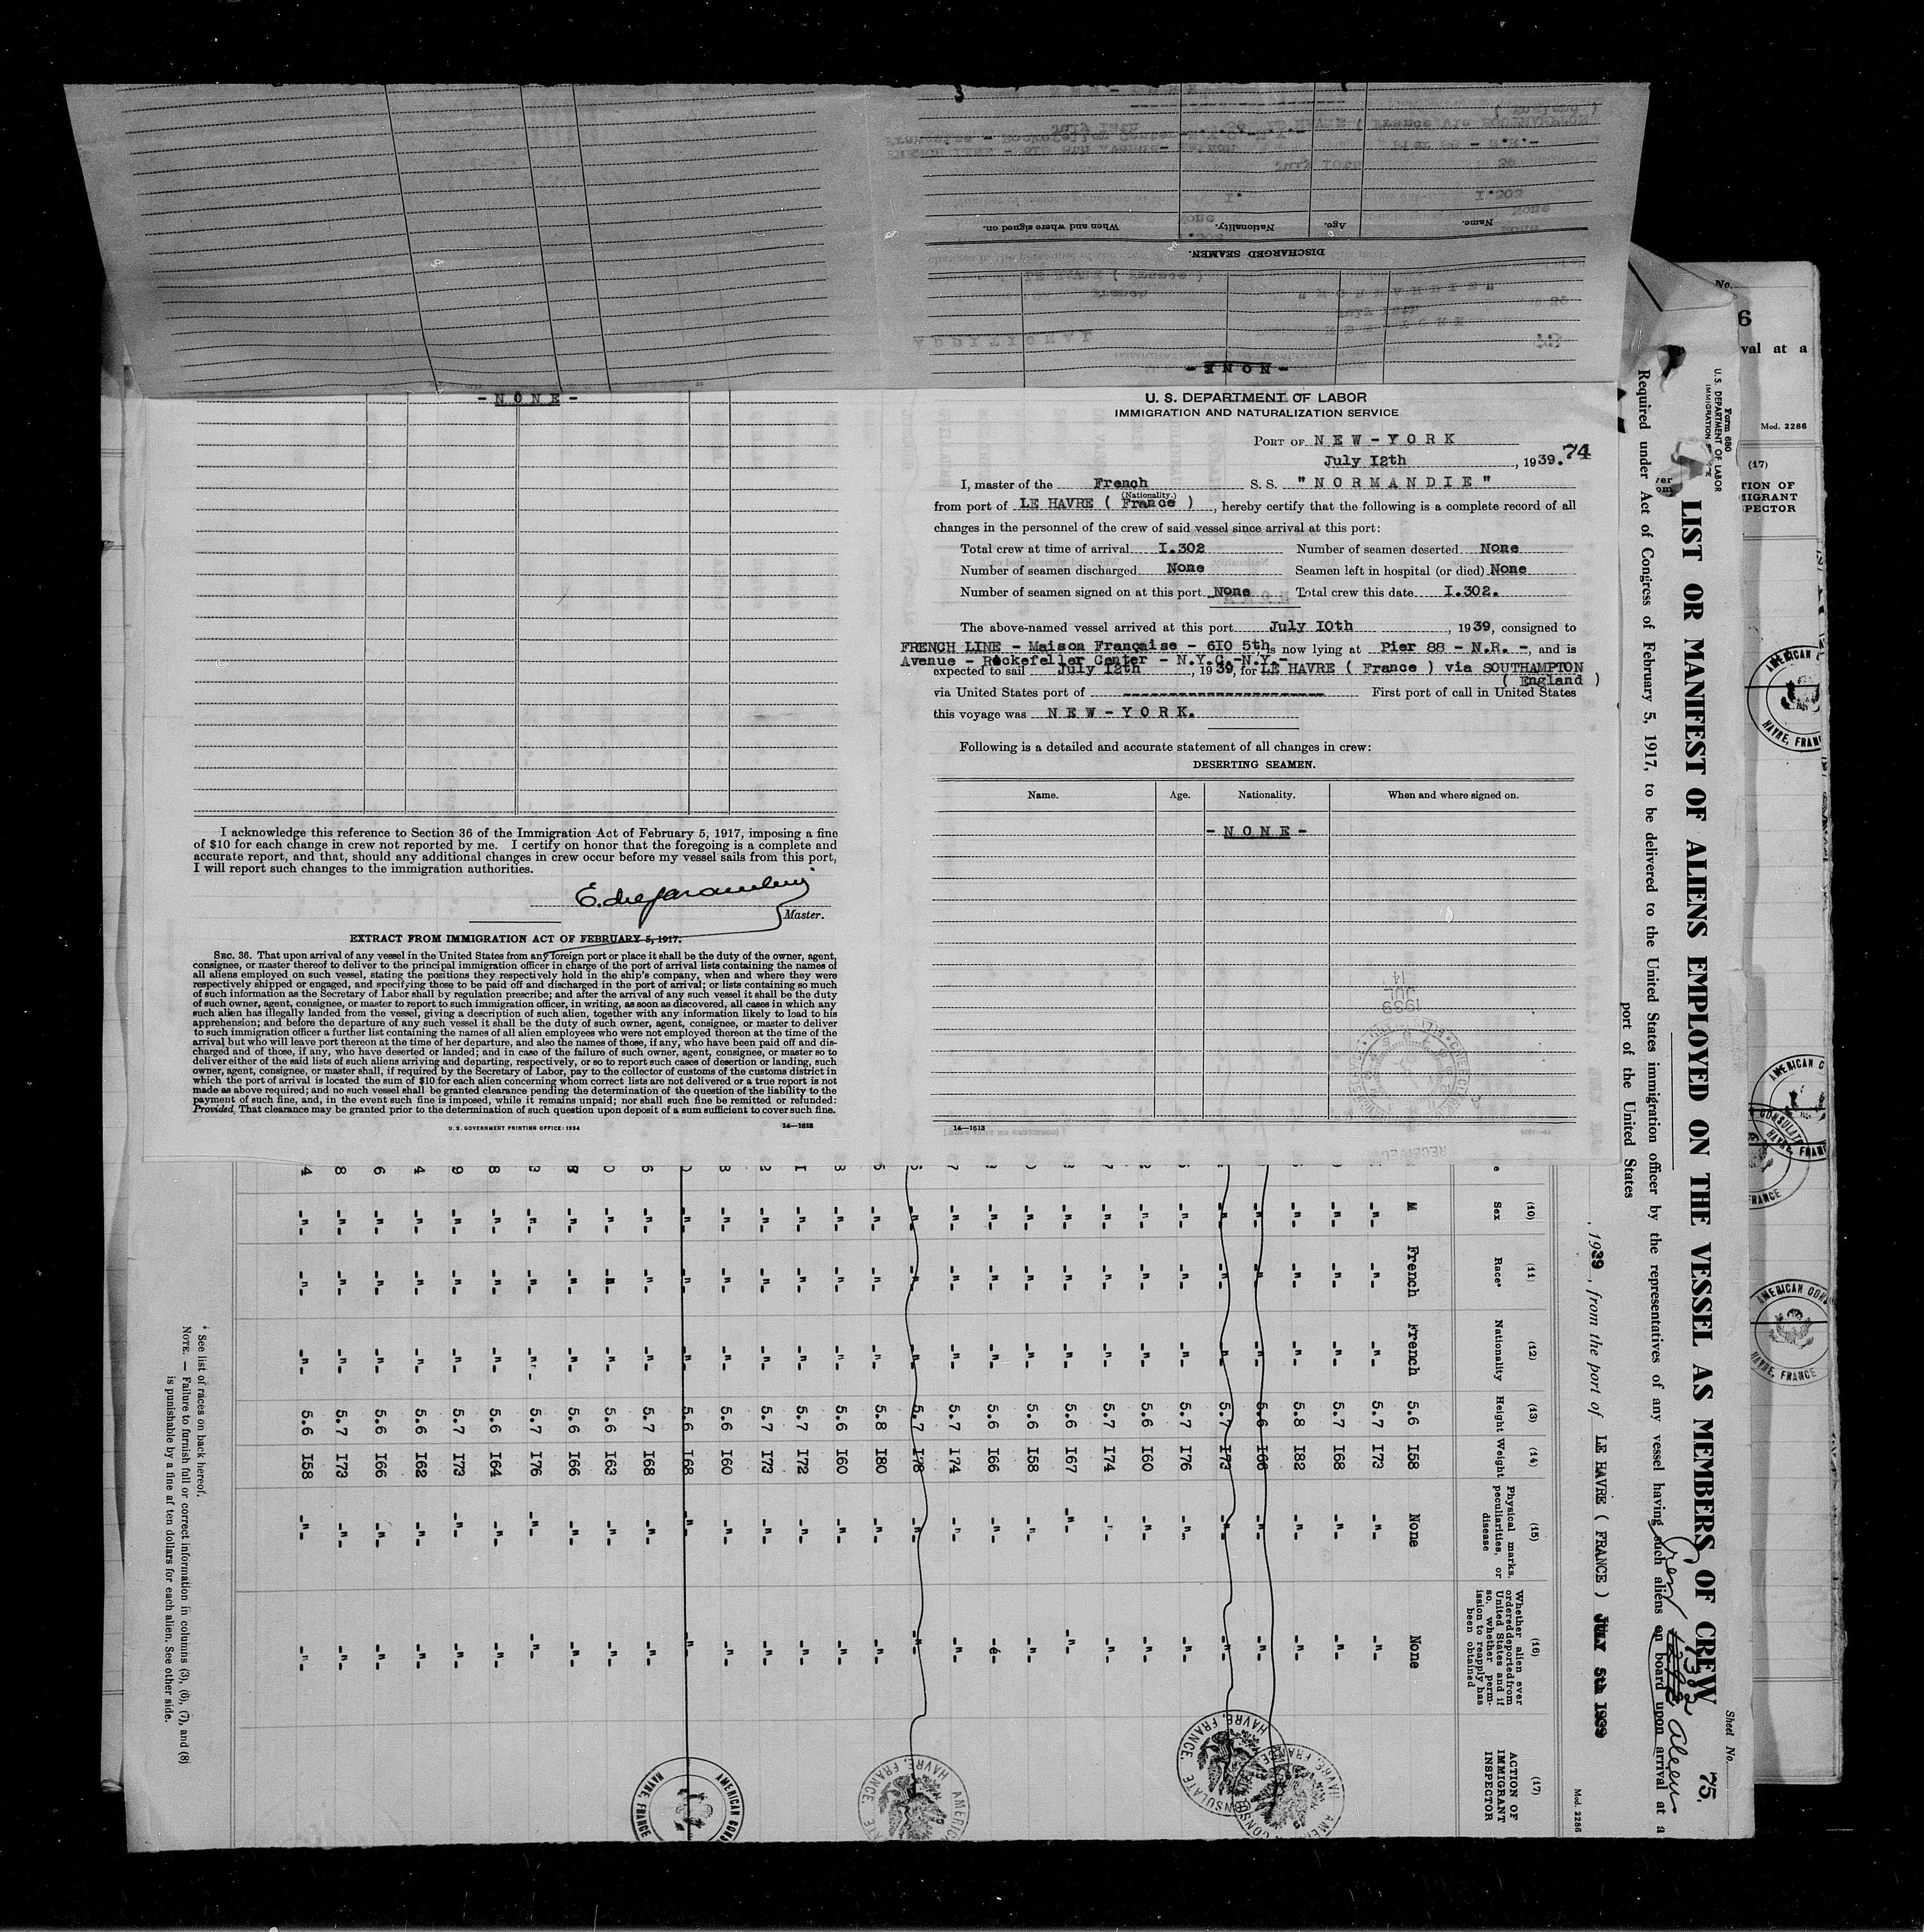 - NONE -
I acknowledge this reference to Section 36 of the Immigration Act of February 5, 1917, imposing a fine
of $10 for each change in crew not reported by me. I certify on honor that the foregoing is a complete and
accurate report, and that, should any additional changes in crew occur before my vessel sails from this port,
I will report such changes to the immigration authorities.
Master.
EXTRACT FROM IMMIGRATION ACT OF FEBRUARY 5, 1917.
SEC. 36. That upon arrival of any vessel in the United States from any foreign port or place it shall be the duty of the owner, agent,
consignee, or master thereof to deliver to the principal immigration officer in charge of the port of arrival lists containing the names of
all aliens employed on such vessel, stating the positions they respectively hold in the ship's company, when and where they were
respectively shipped or engaged, and specifying those to be paid off and discharged in the port of arrival; or lists containing so much
of such information as the Secretary of Labor shall by regulation prescribe; and after the arrival of any such vessel it shall be the duty
of such owner, agent, consignee, or master to report to such immigration officer, in writing, as soon as discovered, all cases in which any
such alien has illegally landed from the vessel, giving a description of such alien, together with any information likely to lead to his
apprehension; and before the departure of any such vessel it shall be the duty of such owner, agent, consignee, or master to deliver
to such immigration officer a further list containing the names of all alien employees who were not employed thereon at the time of the
arrival but who will leave port thereon at the time of her departure, and also the names of those, if any, who have been paid off and dis-
charged and of those, if any, who have deserted or landed; and in case of the failure of such owner, agent, consignee, or master so to
deliver either of the said lists of such aliens arriving and departing, respectively, or so to report such cases of desertion or landing, such
owner, agent, consignee, or master shall, if required by the Secretary of Labor, pay to the collector of customs of the customs district in
which the port of arrival is located the sum of $10 for each alien concerning whom correct lists are not delivered or a true report is not
made as above required; and no such vessel shall be granted clearance pending the determination of the question of the liability to the
payment of such fine, and, in the event such fine is imposed, while it remains unpaid; nor shall such fine be remitted or refunded:
Provided, That clearance may be granted prior to the determination of such question upon deposit of a sum sufficient to cover such fine.
U.S. GOVERNMENT PRINTING OFFICE: 1934
14—1613
DISCHARGED SEAMEN.
Name. Age. Nationality. When and where signed on.
- NONE -
U. S. DEPARTMENT OF LABOR
IMMIGRATION AND NATURALIZATION SERVICE
PORT OF NEW-YORK
July 12th, 1939. 74
I, master of the French S. S. "NORMANDIE"
(Nationality.)
from port of LE HAVRE ( France ), hereby certify that the following is a complete record of all
changes in the personnel of the crew of said vessel since arrival at this port:
Total crew at time of arrival I.302 Number of seamen deserted None
Number of seamen discharged None Seamen left in hospital (or died) None
Number of seamen signed on at this port None Total crew this date I.302.
The above-named vessel arrived at this port July I0th, 1939, consigned to
FRENCH LINE - Maison Française - 6I0 5th is now lying at Pier 88 - N.R. -, and is
Avenue - Rockefeller Center - N.Y.C.-N.Y.-
expected to sail July I2th, 1939, for LE HAVRE ( France ) via SOUTHAMPTON
( England )
via United States port of ---------- First port of call in United States
this voyage was NEW-YORK.
Following is a detailed and accurate statement of all changes in crew:
DESERTING SEAMEN.
Name. Age. Nationality. When and where signed on.
- NONE -
14—1613
Form 680
U.S. DEPARTMENT OF LABOR
Sheet No. 75.
LIST OR MANIFEST OF ALIENS EMPLOYED ON THE VESSEL AS MEMBERS OF CREW
Required under Act of Congress of February 5, 1917, to be delivered to the United States immigration officer by the representatives of any vessel having such aliens on board upon arrival at a
port of the United States
, 1939, from the port of LE HAVRE ( FRANCE ) JULY 5th I939
Mod. 2286
(10) Sex
(11) Race*
(12) Nationality
(13) Height
(14) Weight
(15) Physical marks, peculiarities, or disease
(16) Whether alien ever ordered deported from United States and if so, whether permission to reapply has been obtained
(17) ACTION OF IMMIGRANT INSPECTOR
M French French 5.6 I58 None None
-"- -"- -"- 5.7 I73 -"- -"-
-"- -"- -"- 5.7 I68 -"- -"-
-"- -"- -"- 5.8 I82 -"- -"-
-"- -"- -"- 5.6 I66 -"- -"-
-"- -"- -"- 5.7 I73 -"- -"-
-"- -"- -"- 5.7 I76 -"- -"-
-"- -"- -"- 5.6 I60 -"- -"-
-"- -"- -"- 5.7 I74 -"- -"-
-"- -"- -"- 5.6 I67 -"- -"-
-"- -"- -"- 5.6 I58 -"- -"-
-"- -"- -"- 5.6 I66 -"- -é-
-"- -"- -"- 5.7 I74 -"- -"-
-"- -"- -"- 5.7 I78 -"- -"-
-"- -"- -"- 5.8 I80 -"- -"-
-"- -"- -"- 5.6 I60 -"- -"-
-"- -"- -"- 5.7 I72 -"- -"-
-"- -"- -"- 5.7 I73 -"- -"-
-"- -"- -"- 5.6 I60 -"- -"-
-"- -"- -"- 5.6 I68 -"- -"-
-"- -"- -"- 5.7 I68 -"- -"-
-"- -"- -"- 5.6 I63 -"- -"-
-"- -"- -"- 5.6 I66 -"- -"-
-"- -"- -"- 5.7 I76 -"- -"-
-"- -"- -"- 5.6 I64 -"- -"-
-"- -"- -"- 5.7 I73 -"- -"-
-"- -"- -"- 5.6 I62 -"- -"-
-"- -"- -"- 5.6 I66 -"- -"-
-"- -"- -"- 5.7 I73 -"- -"-
-"- -"- -"- 5.6 I58 -"- -"-
* See list of races on back hereof.
NOTE. — Failure to furnish full or correct information in columns (3), (6), (7), and (8)
is punishable by a fine af ten dollars for each alien. See other side.
HAVRE, FRANCE
No.
6
val at a
Mod. 2286
(17)